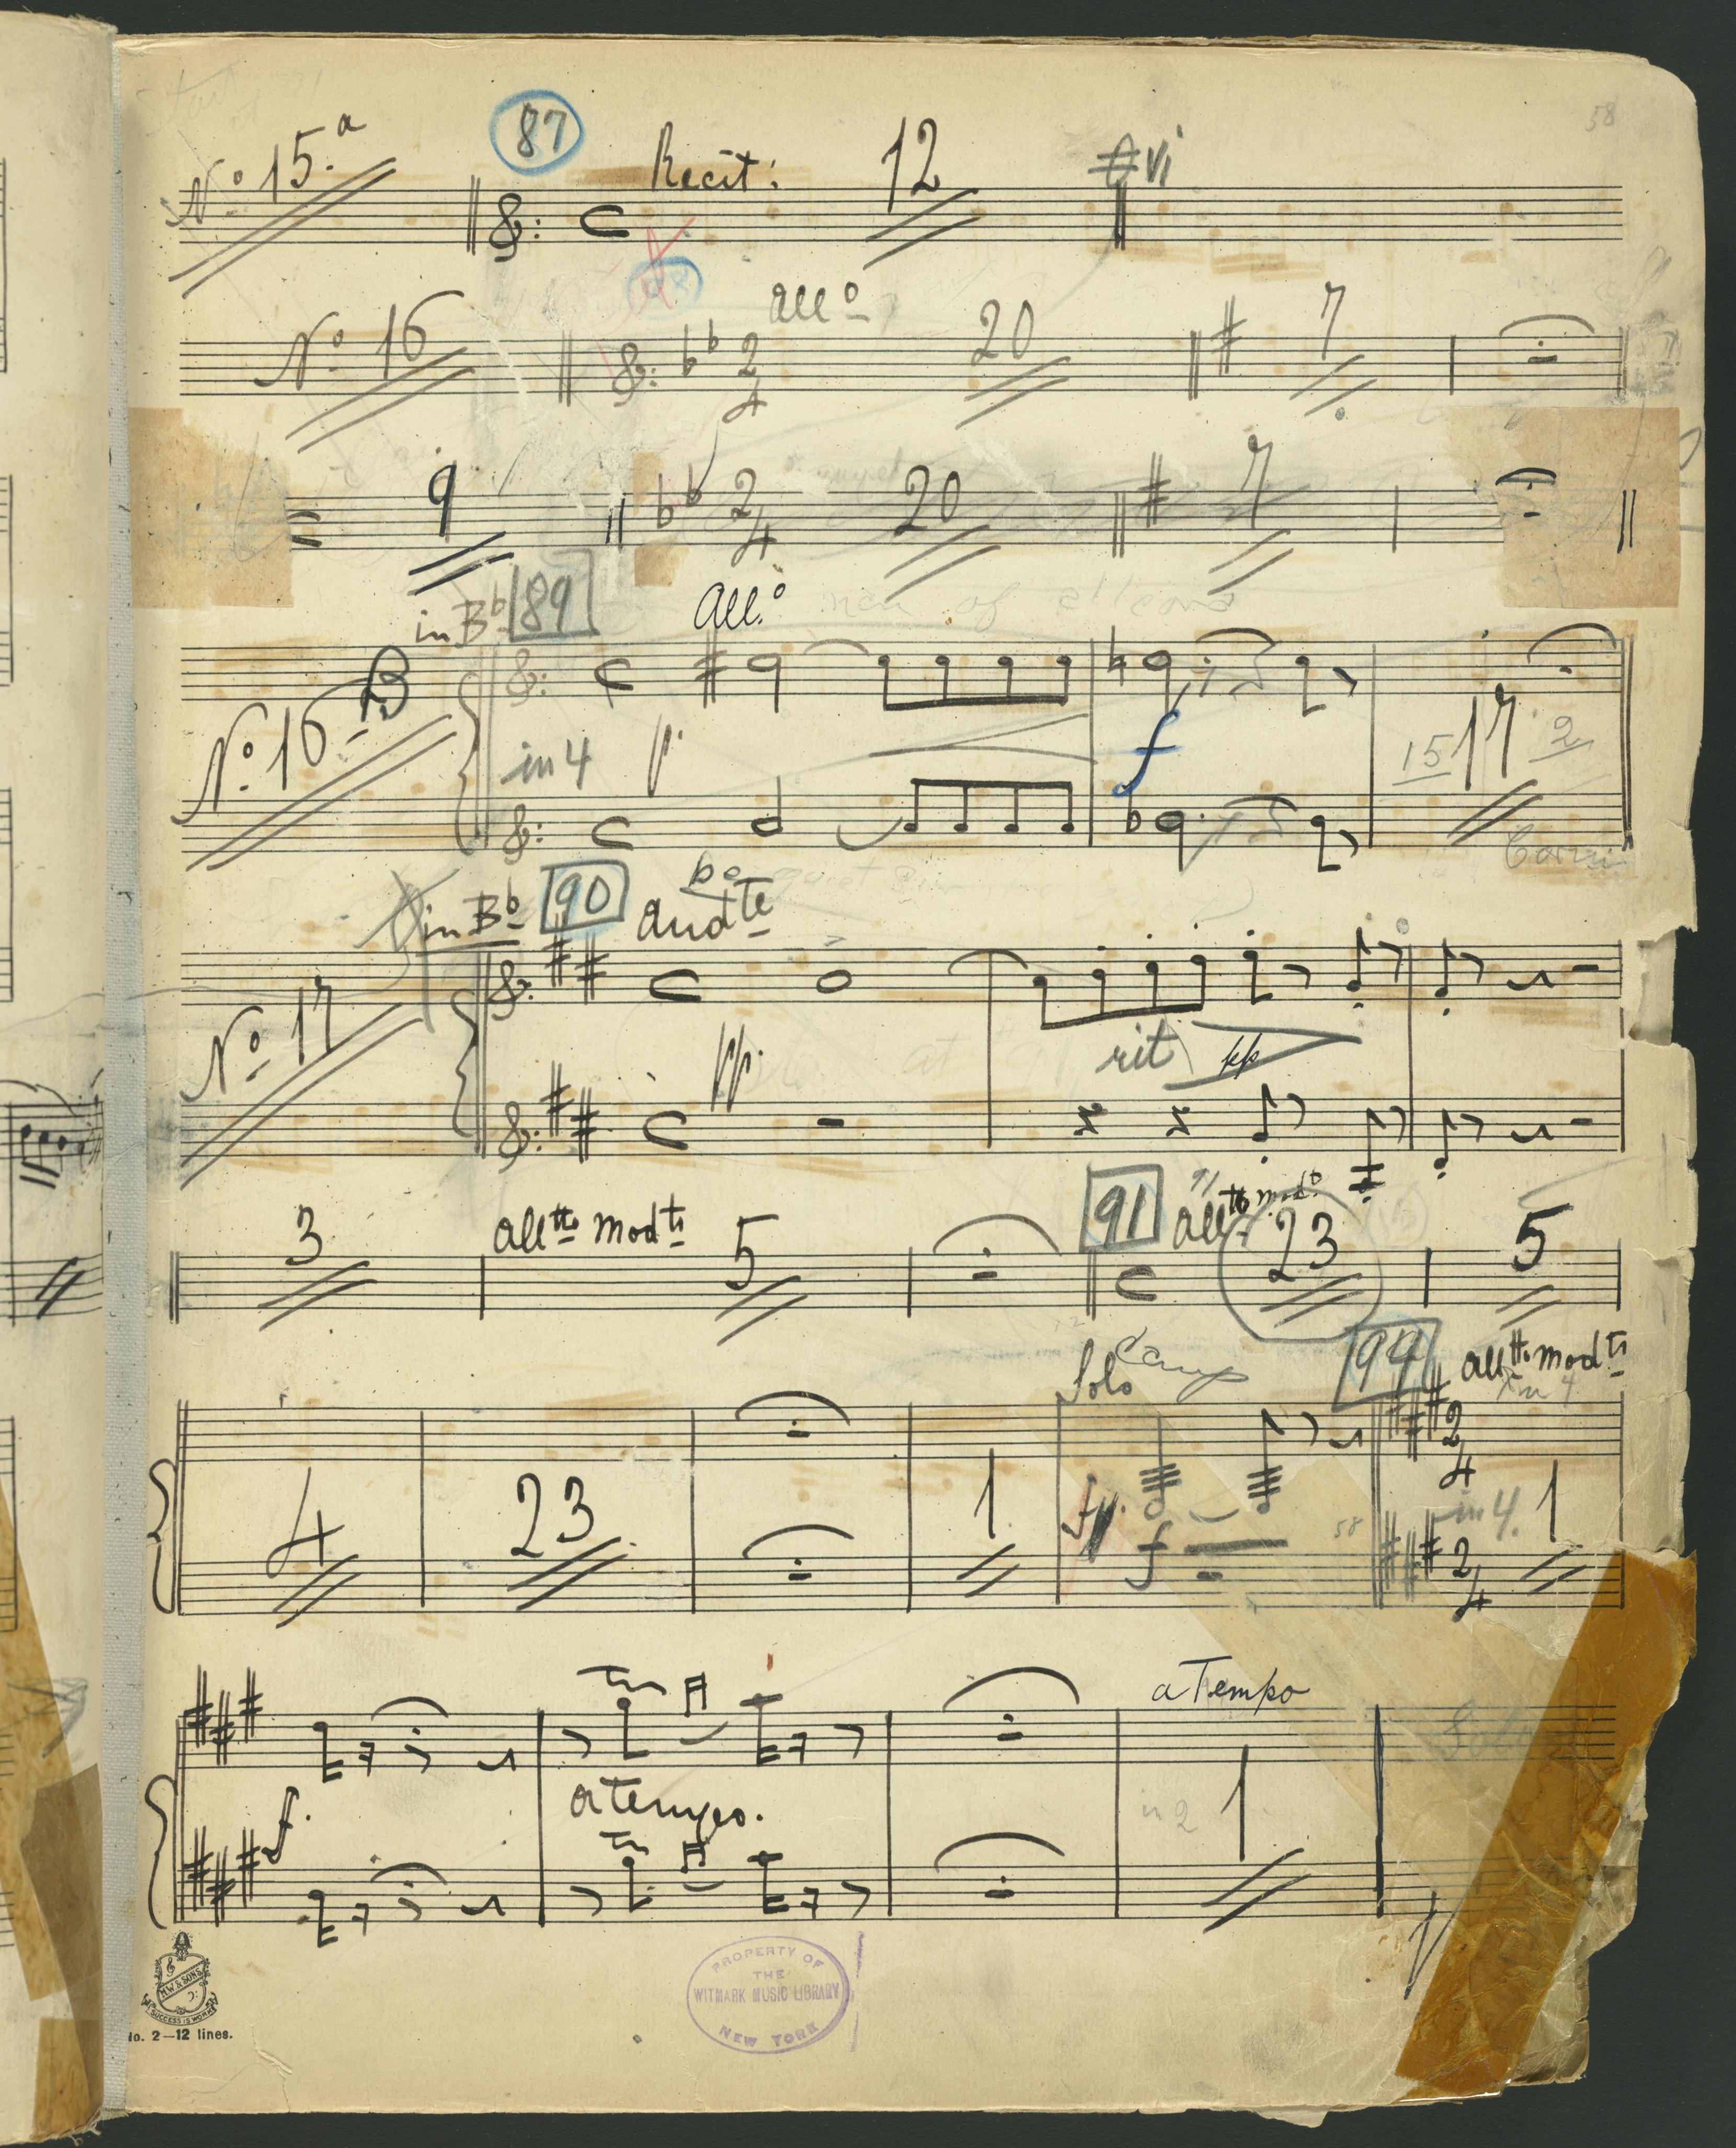 58
87
Nº 15.a Recit: 12 Vi
Nº 16 Allº 20 7
9 2 4 20 7
in Bb 89 All.º
Nº 16 B
in 4 p. f 15 17 2
in Bb 90 Andte
Nº 17 pp. rit pp
91
3 Alltto Modto 5 Alltto modto 23 5
Solo 94 Alltto Modto
2 4
4 23 1 f in 4. 1
58
2 4
a Tempo
f. a tempo. in 2 1
M.W. & SONS
SUCCESS IS WORK
No. 2—12 lines.
PROPERTY OF
THE
WITMARK MUSIC LIBRARY
NEW YORK